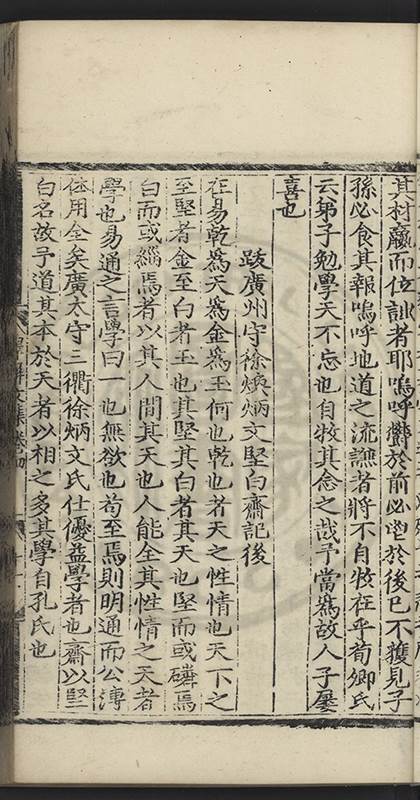 其材藏而位訓者耶嗚呼欝於前必鬯於後已不獲見子
孫必食其報嗚呼地道之流謙者將不自牧在乎荀卿氏
云弟子勉學天不忘也自牧其念之哉予當為故人子屢
喜也
跋廣州守徐煥炳文堅白齋記後
在易乾為天為金為玉何也乾也者天之性情也天下之
至堅者金至白者玉也其堅其白者其天也堅而或磷焉
白而或緇焉者以其人間其天也人能全其性情之天者
學也易通之言學曰一也無欲也苟至焉則明通而公溥
體用全矣廣太守三衢徐炳文氏仕優益學者也齋以堅
白名故予道其本於天者以相之多其學自孔氏也